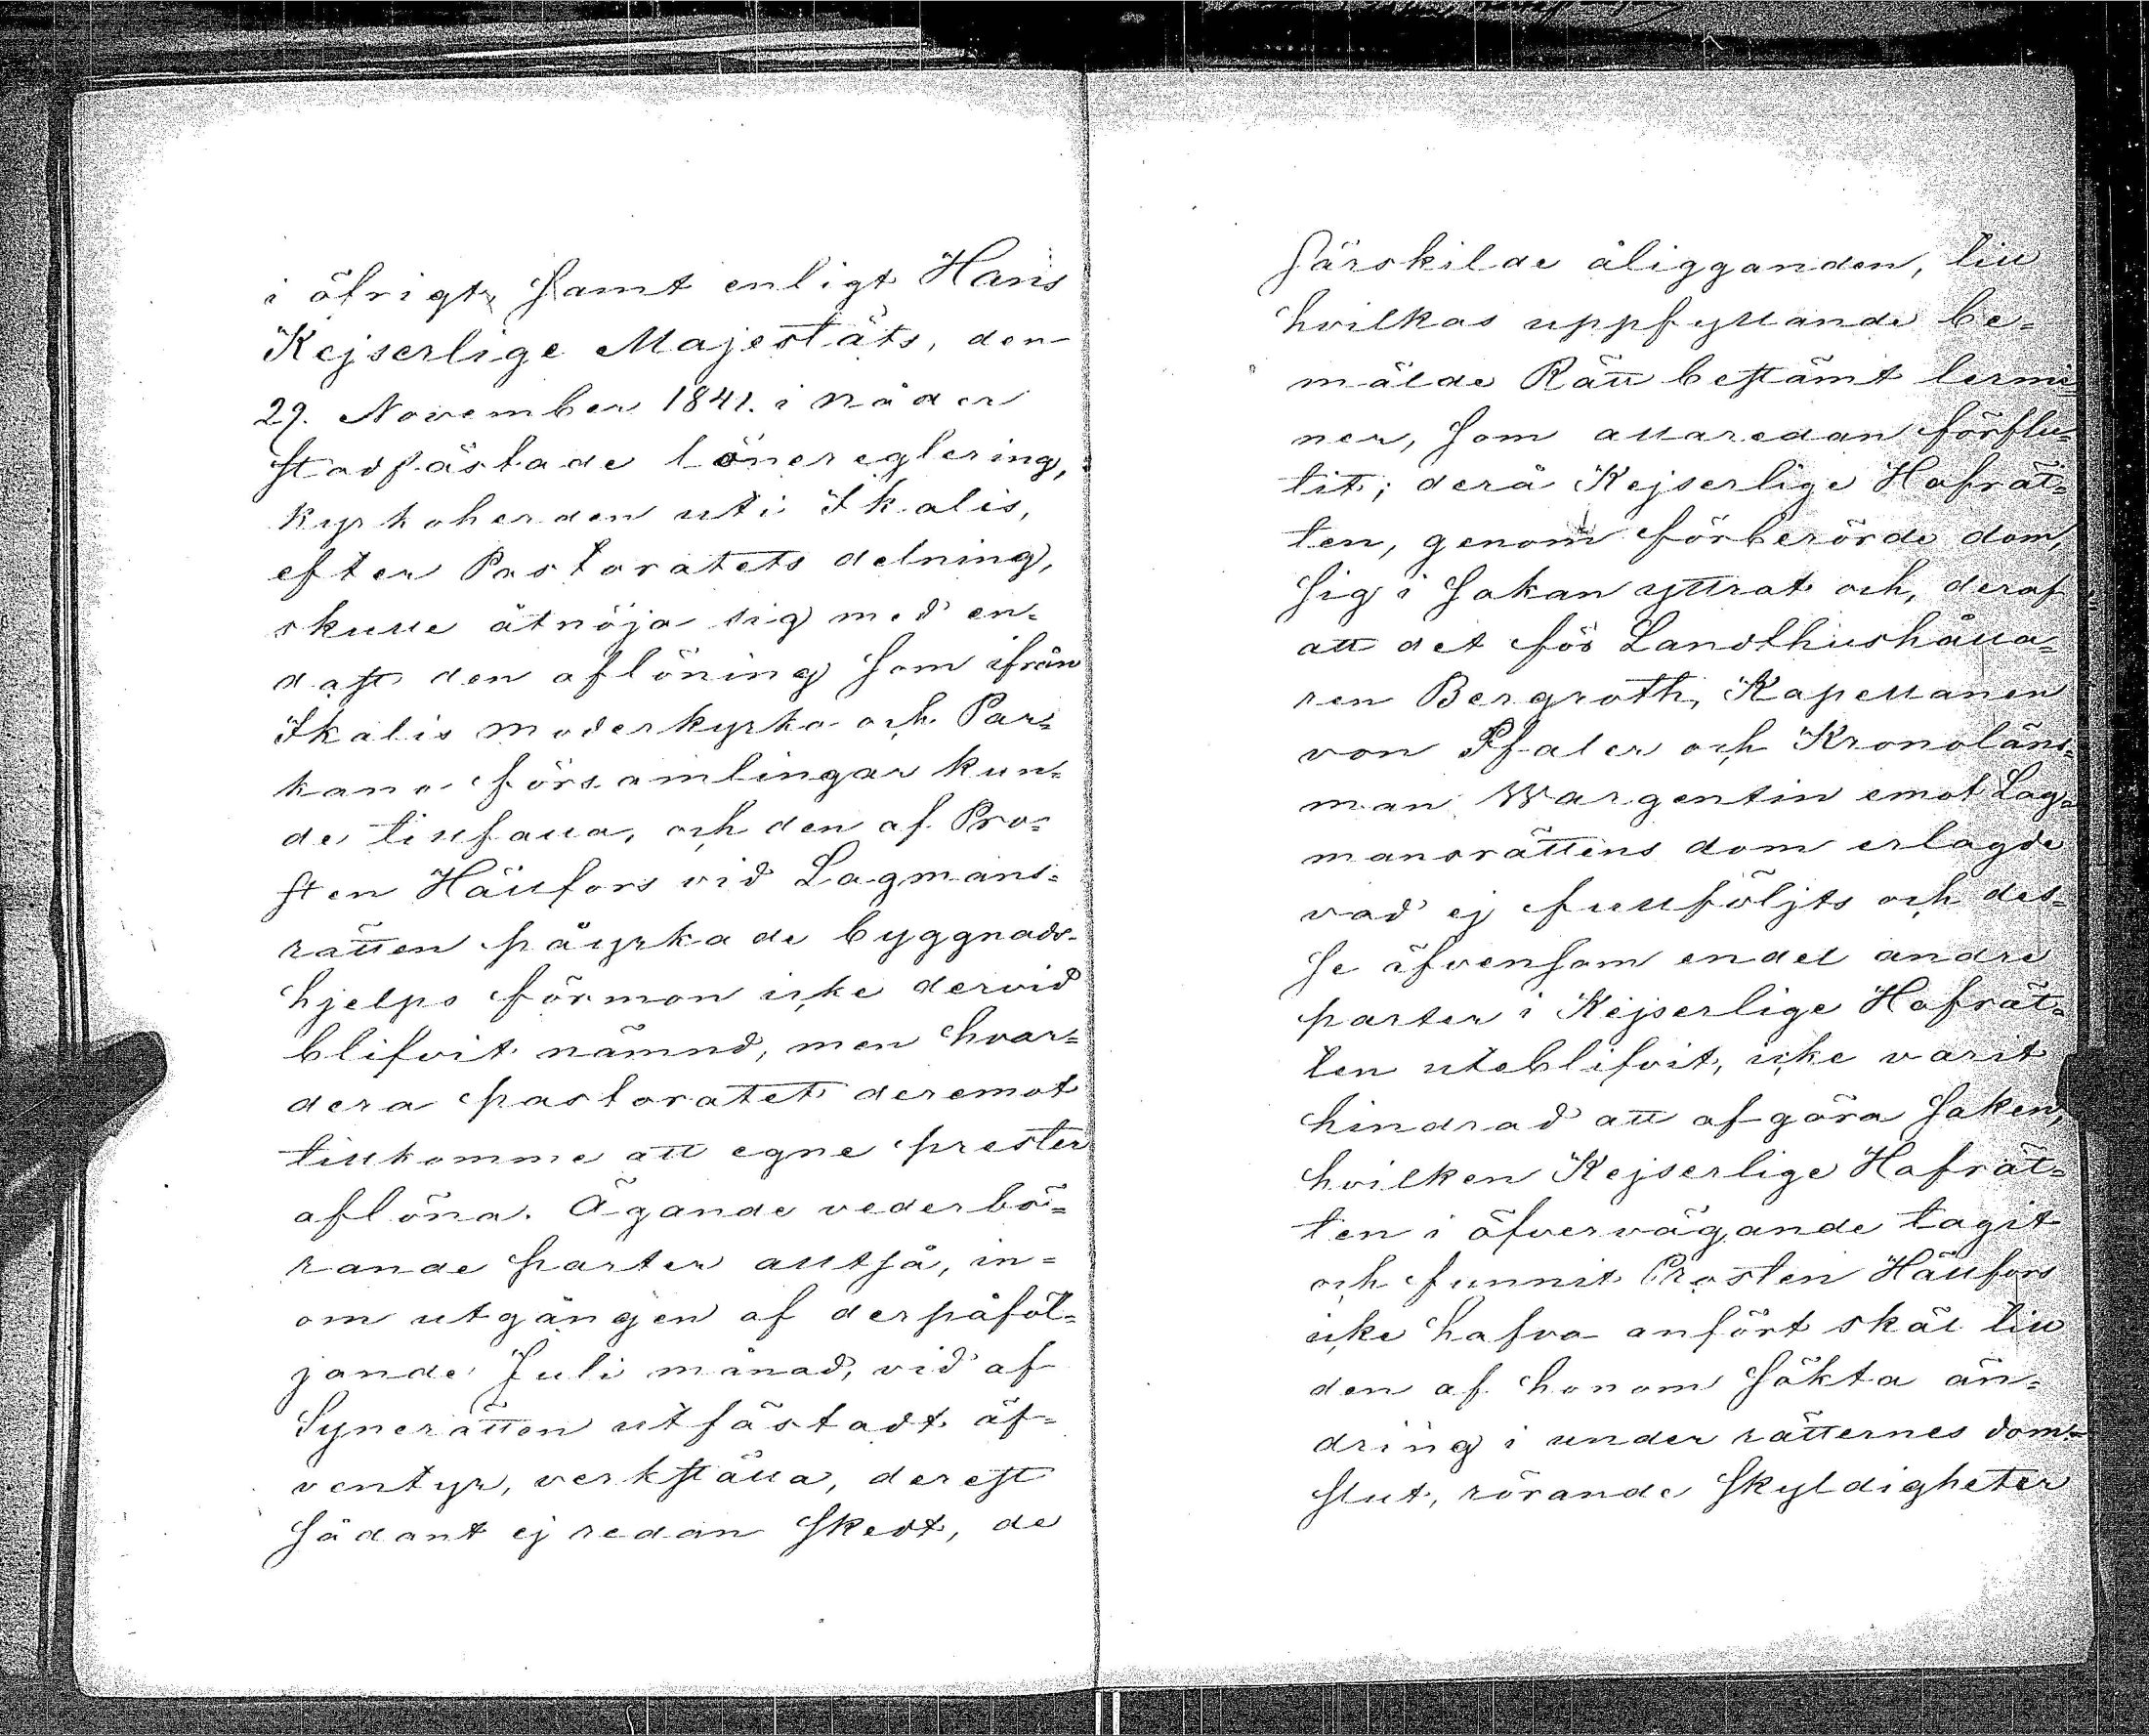 i öfrigt, samt enligt Hans
Kejserlige Majestäts, den
29. November 1841. i nåder
stadfästade lönereglering,
kyrkoherden uti Ikalis,
efter Pastoratets delning,
skulle åtnöja sig med en=
dast den aflöning som ifrån
Ikalis moderkyrko och Par=
kano församlingar kun=
de tillfalla, och den af Pro=
sten Hällfors vid Lagmans=
rätten påyrkade byggnads-
hjelps förmon icke dervid
blifvit nämnd, men hvar=
dera pastoratet deremot
tillkomme att egne prester
aflöna. Ägande vederbö=
rande parter alltså, in=
om utgången af derpåföl=
jande Juli månad, vid af
Synerätten utfästadt äf=
ventyr, verkställa, derest
sådant ej redan skedt, de
särskilde åligganden, till
hvilkas uppfyllande be=
mälde Rätt bestämt termi
ner, som allaredan förflu=
tit; derå Kejserlige Hofrät=
ten, genom förberörde dom,
sig i sakan yttrat och, deraf
att det för Landthushålla=
ren Bergroth, Kapellanen
von Pfaler och Kronolä̈ns=
man Wargentin emot Lag=
mansrättens dom erlagde
vad ej fullföljts och des=
se äfvensom endel andre
parter i Kejserlige Hofrät=
ten uteblifvit, icke varit
hindrad att afgöra saken,
hvilken Kejserlige Hofrät=
ten i öfvervägande tagit
och funnit Prosten Hällfors
icke hafva anfört skäl till
den af honom sökta än=
dring i under rätternes dom=
slut, rörande skyldigheter